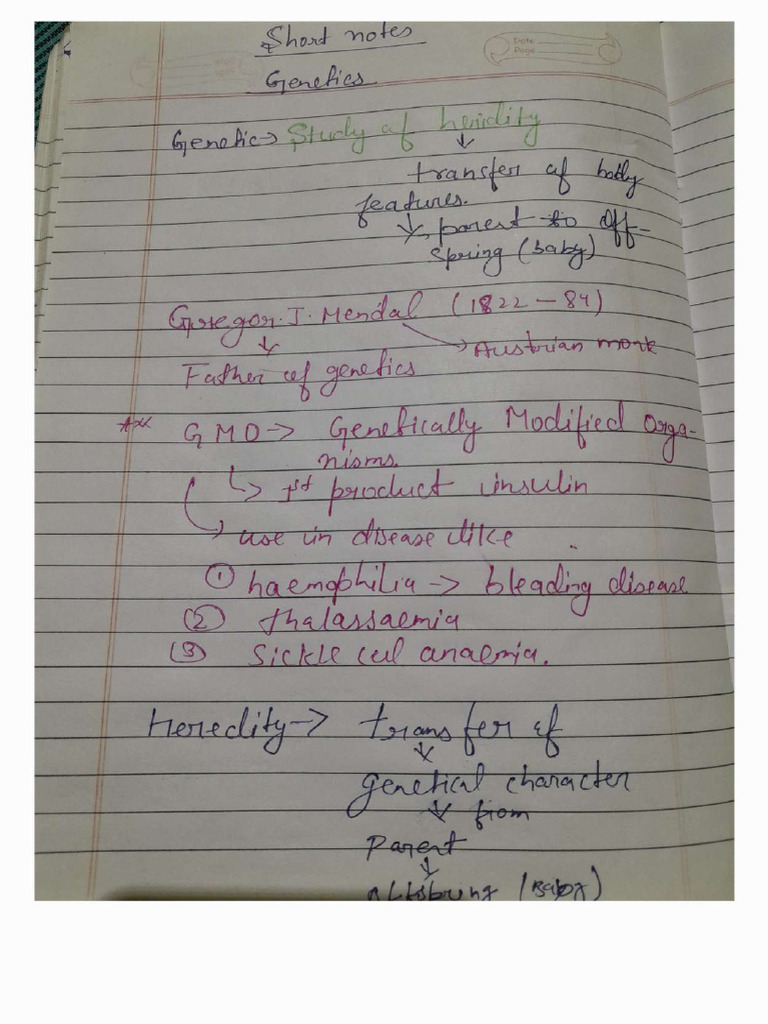 Short notes
Genetics
Date
Page
Genetic → Study of heridity
↓
transfer of body
features.
↓ parent to off-
spring (baby)
Gregor. J. Mendal (1822 - 84)
→ Austrian monk
↓
Father of genetics
GMO → Genetically Modified Orga-
nisms.
↳ 1st product insulin
→ use in disease like
① haemophilia → bleading disease
② thalassaemia
③ Sickle cell anaemia.
Heredity → transfer of
↓
genetical character
↓ from
Parent
↓
offspring (Baby)